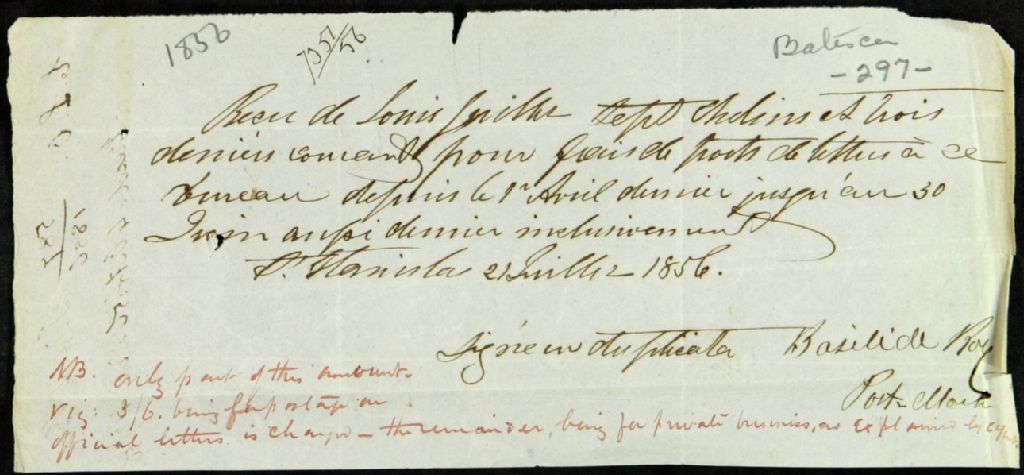 1856
7357/56
Batiscan
-297-
Recu de Louis Guillet Sept Chelins et trois
deniers courant pour frais de ports de lettres à ce
bureau depuis le 1er Avril dernier jusqu'au 30
Juin aussi dernier inclusivement
St. Stanislas 21 Juillet 1856.
Signé en duplicata Basile de Roy
Post Mast
NB. only part of this amount
viz: 3/6. being for postage on
official letters is charged - the remainder, being for private business, as explained by